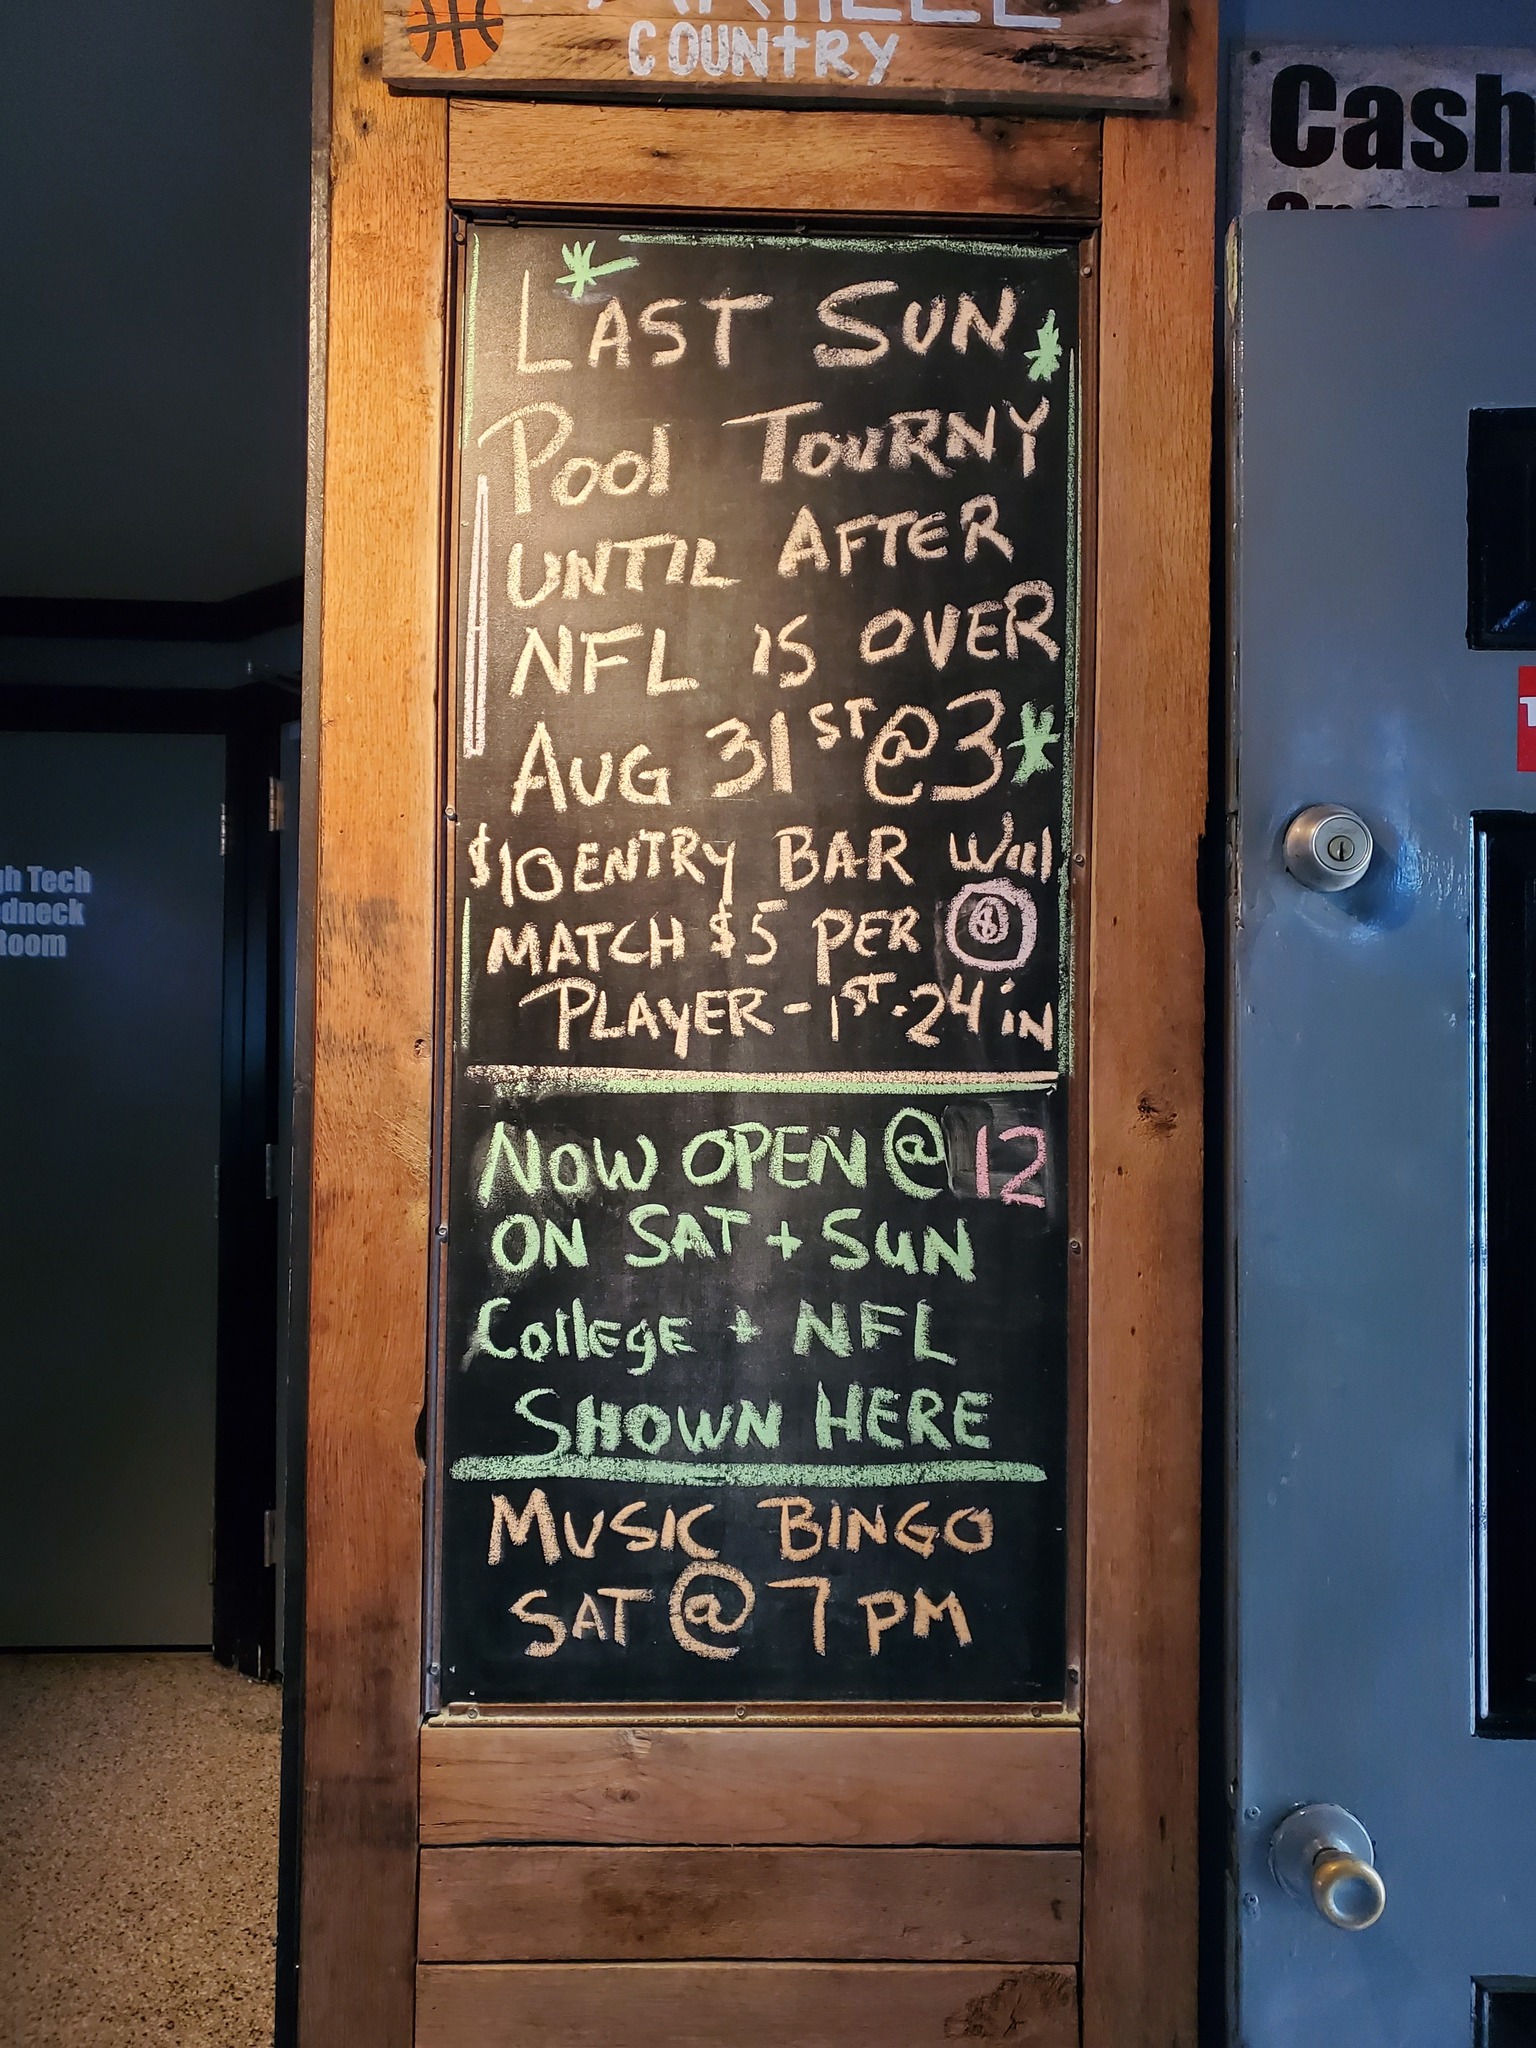 COUNTRY
Cash
LAST SUN
Pool TOURNY
UNTIL AFTER
NFL IS OVER
AUG 31ST @ 3
$10 ENTRY BAR Will
MATCH $5 PER $
PLAYER - 1ST. 24 iN
NOW OPEN @ 12
ON SAT + SUN
College + NFL
SHOWN HERE
MUSIC BINGO
SAT @ 7 PM
gh Tech
dneck
Room